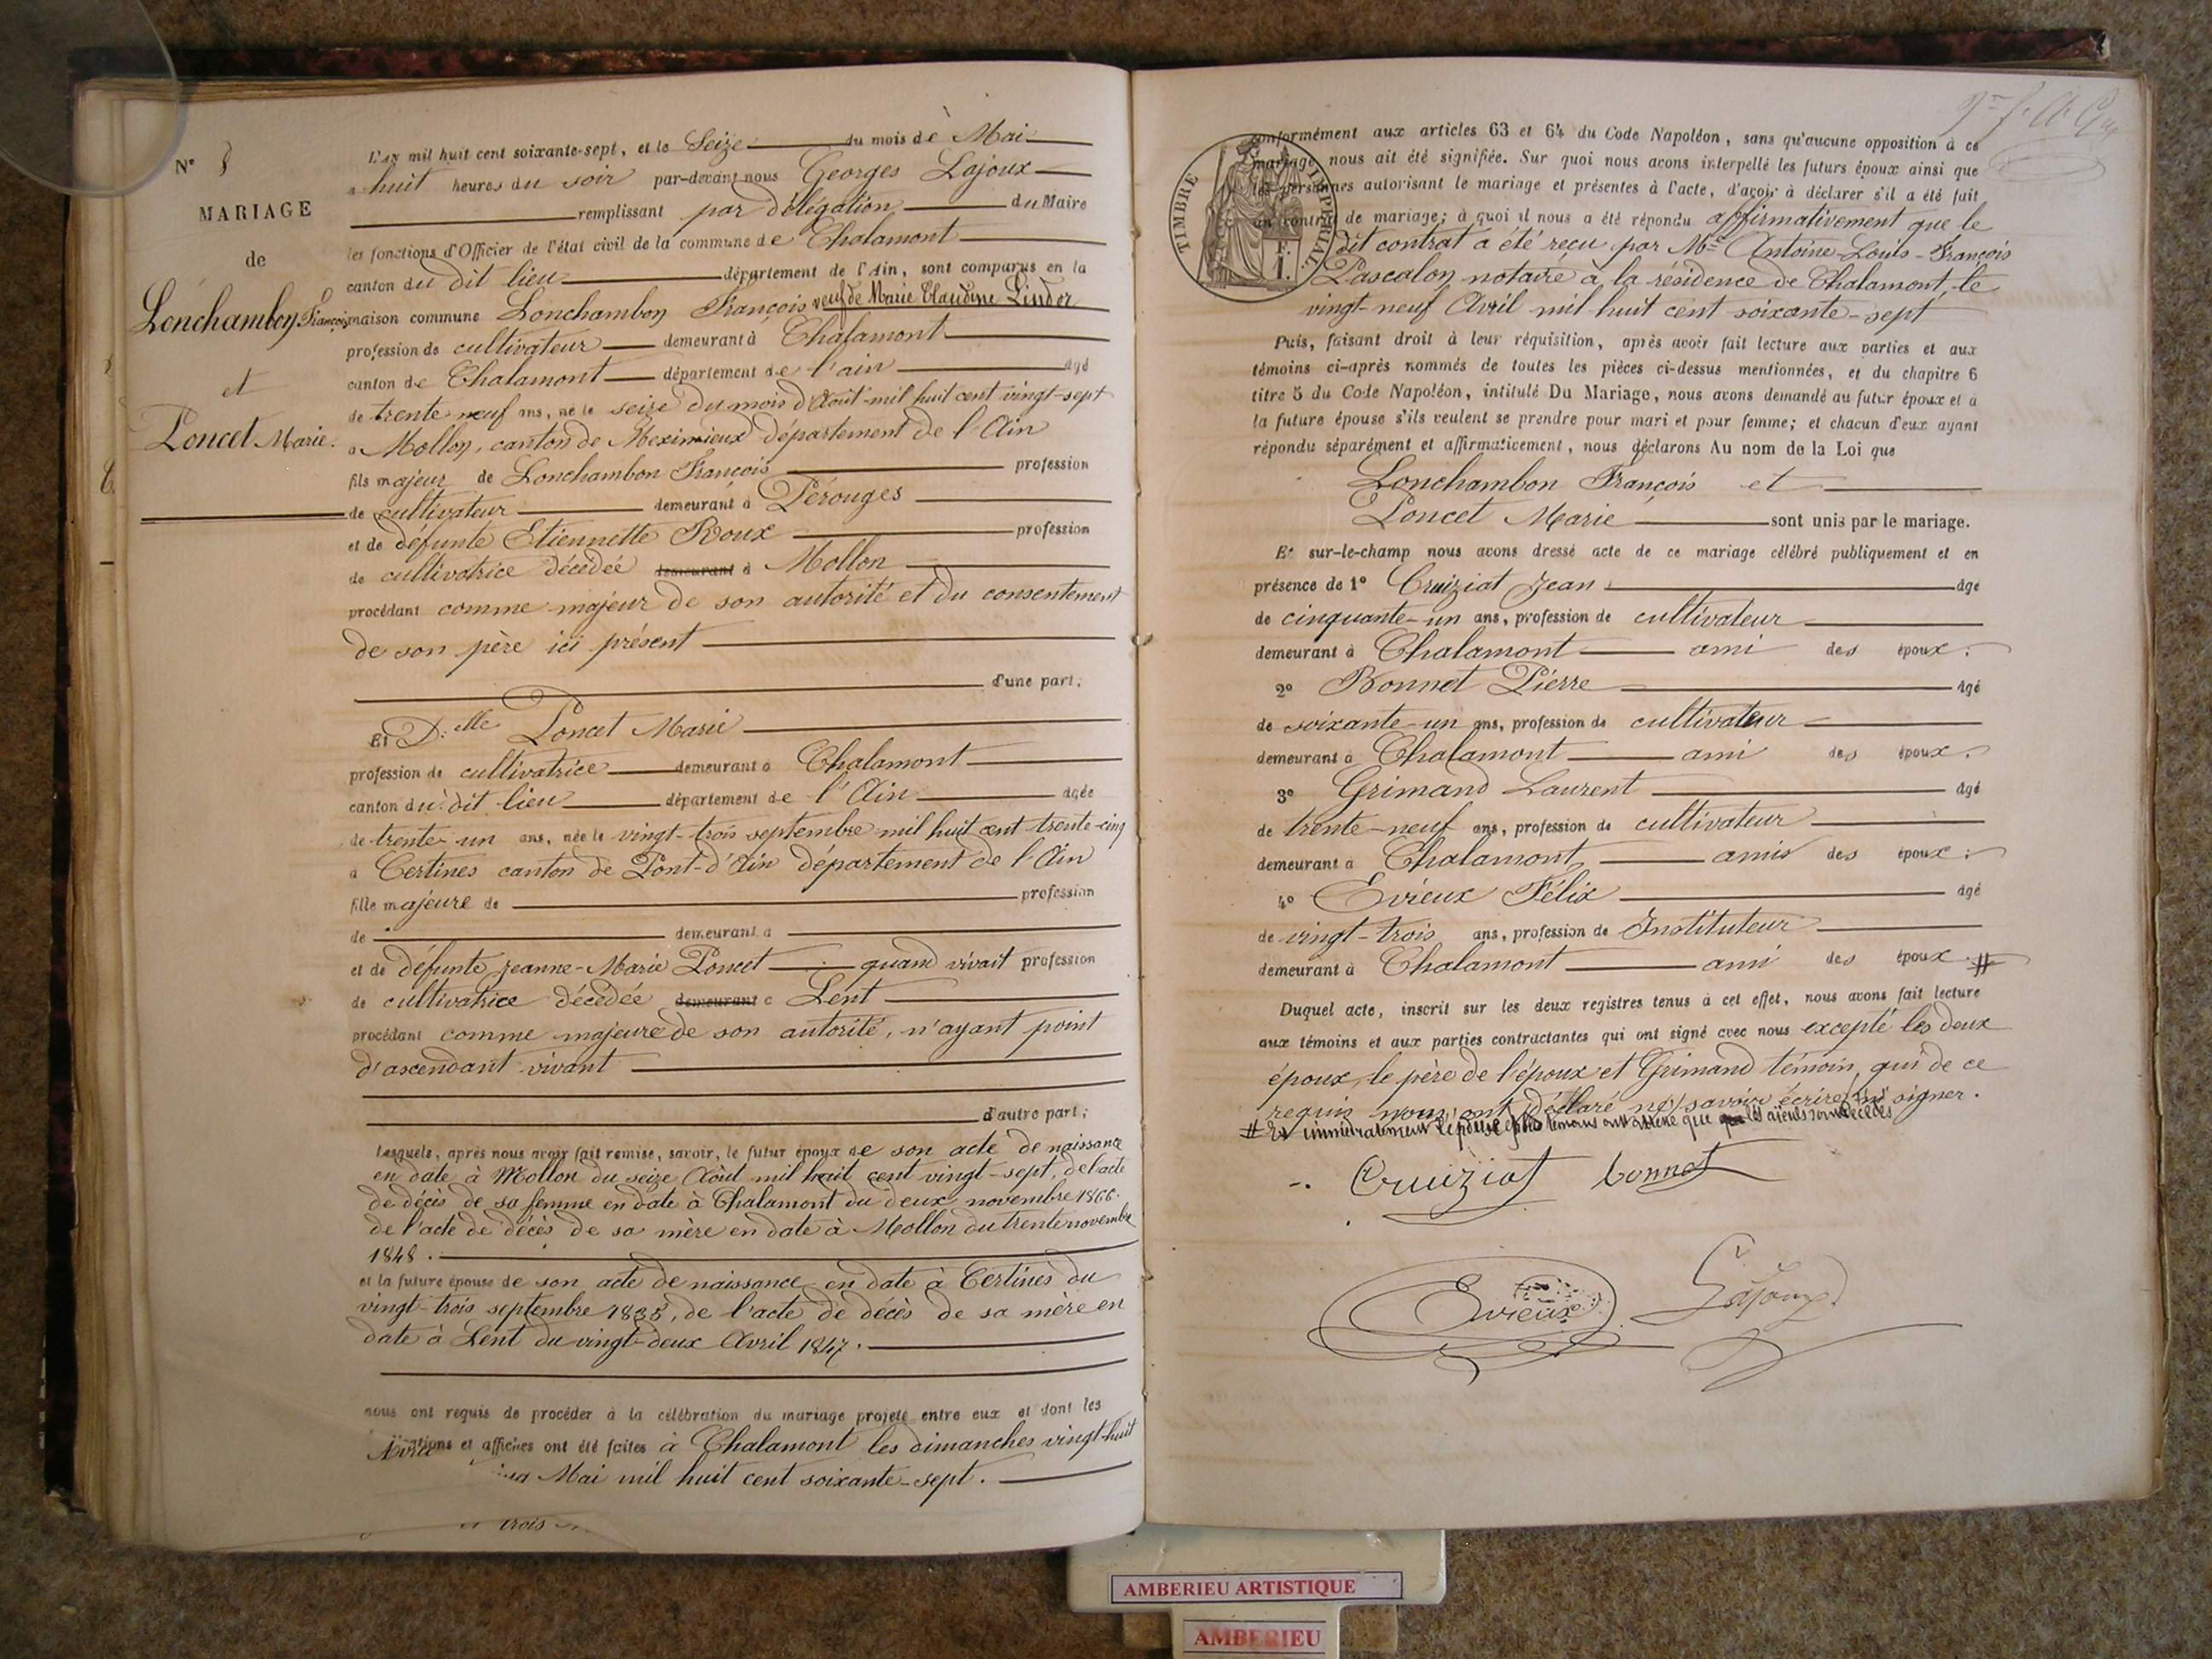 N° 8
MARIAGE
de
Lonchambon François
et
Poncet Marie.
L'an mil huit cent soixante-sept, et le Seize du mois de Mai
a huit heures du soir par-devant nous Georges Lajoux
remplissant par délégation du Maire
les fonctions d'Officier de l'état civil de la commune de Chalamont
canton du dit lieu département de l'Ain, sont comparus en la
maison commune Lonchambon François veuf de Marie Claudine Lindor
profession de cultivateur demeurant à Chalamont
canton de Chalamont département de l'ain agé
de trente neuf ans, né le seize du mois d'Août mil huit cent vingt-sept
a Mollon, canton de Meximieux département de l'Ain
fils majeur de Lonchambon François profession
de cultivateur demeurant à Pérouges
et de défunte Etiennette Roux profession
de cultivatrice décédée demeurant à Mollon
procédant comme majeur de son autorité et du consentement
de son père ici présent
d'une part;
Et D.elle Poncet Marie
profession de cultivatrice demeurant à Chalamont
canton du dit lieu département de l'Ain agée
de trente-un ans, née le vingt-trois septembre mil huit cent trente-cinq
a Certines canton de Pont-d'Ain département de l'Ain
fille majeure de profession
de demeurant a
et de défunte Jeanne-Marie Poncet quand vivait profession
de cultivatrice décédée demeurant a Lent
procédant comme majeure de son autorité, n'ayant point
d'ascendant vivant
d'autre part;
Lesquels, après nous avoir fait remise, savoir, le futur époux de son acte de naissance
en date à Mollon du seize Août mil huit cent vingt-sept, de l'acte
de décès de sa femme en date à Chalamont du deux novembre 1866.
de l'acte de décès de sa mère en date à Mollon du trente novembre
1848.
et la future épouse de son acte de naissance en date à Certines du
vingt-trois septembre 1835, de l'acte de décès de sa mère en
date à Lent du vingt-deux Avril 1847.
nous ont requis de procéder à la célébration du mariage projeté entre eux et dont les
et affiches ont été faites à Chalamont les dimanches vingt-huit
Mai mil huit cent soixante-sept.
trois
conformément aux articles 63 et 64 du Code Napoléon, sans qu'aucune opposition à ce
mariage nous ait été signifiée. Sur quoi nous avons interpellé les futurs époux ainsi que
les personnes autorisant le mariage et présentes à l'acte, d'avoir à déclarer s'il a été fait
un contrat de mariage; à quoi il nous a été répondu affirmativement que le
dit contrat a été reçu par Me Antoine-Louis-François
Pascalon notaire à la résidence de Chalamont, le
vingt-neuf Avril mil huit cent soixante-sept
TIMBRE IMPERIAL
F.
1.
Puis, faisant droit à leur réquisition, après avoir fait lecture aux parties et aux
témoins ci-après nommés de toutes les pièces ci-dessus mentionnées, et du chapitre 6
titre 5 du Code Napoléon, intitulé Du Mariage, nous avons demandé au futur époux et à
la future épouse s'ils veulent se prendre pour mari et pour femme; et chacun d'eux ayant
répondu séparément et affirmativement, nous déclarons Au nom de la Loi que
Lonchambon François et
Poncet Marie sont unis par le mariage.
Et sur-le-champ nous avons dressé acte de ce mariage célébré publiquement et en
présence de 1° Cruiziat Jean agé
de cinquante-un ans, profession de cultivateur
demeurant à Chalamont ami des époux;
2° Bonnet Pierre agé
de soixante-un ans, profession de cultivateur
demeurant à Chalamont ami des époux;
3° Grimand Laurent agé
de trente-neuf ans, profession de cultivateur
demeurant a Chalamont, amis des époux;
4° Evieux Félix agé
de vingt-trois ans, profession de Instituteur
demeurant à Chalamont ami des époux. #
Duquel acte, inscrit sur les deux registres tenus à cet effet, nous avons fait lecture
aux témoins et aux parties contractantes qui ont signé avec nous excepté les deux
époux, le père de l'époux et Grimand témoin, qui de ce
requis nous ont déclaré ne savoir écrire ni signer.
# Et immédiatement l'épouse et les témoins ont attesté que les aïeuls sont décédés
Cruiziat bonnet
Evieux Lajoux
AMBERIEU ARTISTIQUE
AMBERIEU